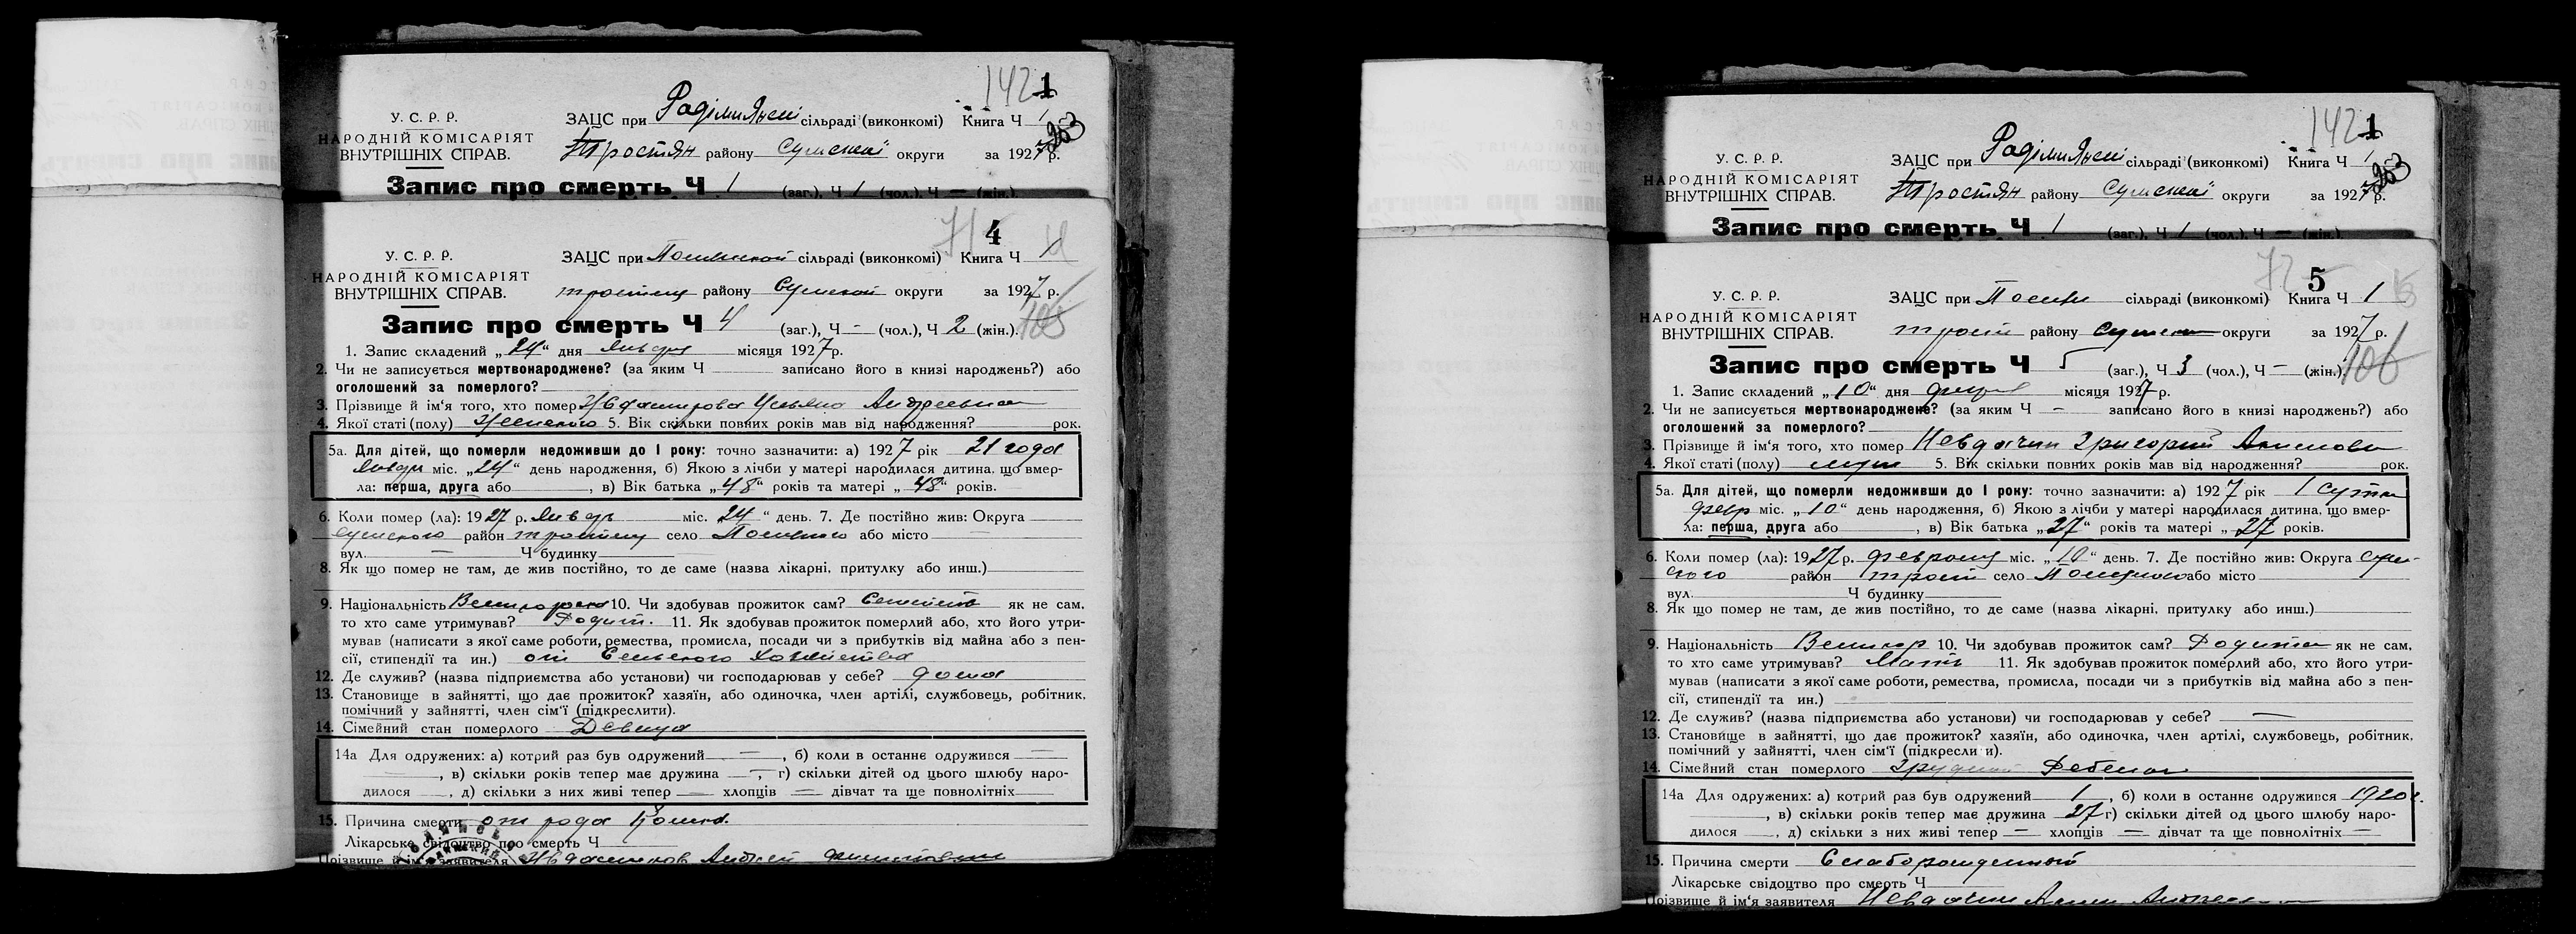 142 1
У. С. Р. Р.
НАРОДНІЙ КОМІСАРІЯТ
ВНУТРІШНІХ СПРАВ.
ЗАЦС при сільраді (виконкомі) Книга Ч 1
Тростян району Сумської округи за 1927 р.
203
Запис про смерть Ч 1 (заг.), Ч 1 (чол.), Ч — (жін.)
71 4
У. С. Р. Р.
НАРОДНІЙ КОМІСАРІЯТ
ВНУТРІШНІХ СПРАВ.
ЗАЦС при сільраді (виконкомі) Книга Ч 1
району Сумской округи за 1927 р.
105
Запис про смерть Ч 4 (заг.), Ч - (чол.), Ч 2 (жін.)
1. Запис складений „24“ дня января місяця 1927 р.
2. Чи не записується мертвонароджене? (за яким Ч записано його в книзі народжень?) або
оголошений за померлого?
3. Прізвище й ім'я того, хто помер Ульяна Андреевна
4. Якої статі (полу) Женского 5. Вік скільки повних років мав від народження? рок.
5а. Для дітей, що померли недоживши до 1 року: точно зазначити: а) 1927 рік 21 года
январ міс. „24“ день народження, б) Якою з лічби у матері народилася дитина, що вмер-
ла: перша, друга або , в) Вік батька „48“ років та матері „48“ років.
6. Коли помер (ла): 1927 р. Январь міс. 24“ день. 7. Де постійно жив: Округа
Сумского район село або місто —
вул. — Ч будинку
8. Як що помер не там, де жив постійно, то де саме (назва лікарні, притулку або инш.)
9. Національність 10. Чи здобував прожиток сам? як не сам,
то хто саме утримував? Родит. 11. Як здобував прожиток померлий або, хто його утри-
мував (написати з якої саме роботи, ремества, промисла, посади чи з прибутків від майна або з пен-
сії, стипендії та ин.) от Сельского Хозяйства
12. Де служив? (назва підприємства або установи) чи господарював у себе? дома
13. Становище в зайнятті, що дає прожиток? хазяїн, або одиночка, член артілі, службовець, робітник,
помічний у зайнятті, член сім'ї (підкреслити).
14. Сімейний стан померлого Девица
14а Для одружених: а) котрий раз був одружений — , б) коли в останнє одружився —
— , в) скільки років тепер має дружина — , г) скільки дітей од цього шлюбу наро-
дилося — , д) скільки з них живі тепер — хлопців — дівчат та ще повнолітніх —
15. Причина смерти от рода
Лікарське свідоцтво про смерть Ч
Прізвище й ім'я заявителя Андрей
142 1
У. С. Р. Р.
НАРОДНІЙ КОМІСАРІЯТ
ВНУТРІШНІХ СПРАВ.
ЗАЦС при сільраді (виконкомі) Книга Ч 1
Тростян району Сумської округи за 1927 р.
203
Запис про смерть Ч 1 (заг.), Ч 1 (чол.), Ч — (жін.)
72 5
У. С. Р. Р.
НАРОДНІЙ КОМІСАРІЯТ
ВНУТРІШНІХ СПРАВ.
ЗАЦС при сільраді (виконкомі) Книга Ч 1
Трост району округи за 1927 р.
106
Запис про смерть Ч 5 (заг.), Ч 3 (чол.), Ч - (жін.)
1. Запис складений „10“ дня місяця 1927 р.
2. Чи не записується мертвонароджене? (за яким Ч — записано його в книзі народжень?) або
оголошений за померлого?
3. Прізвище й ім'я того, хто помер Григорий
4. Якої статі (полу) 5. Вік скільки повних років мав від народження? рок.
5а. Для дітей, що померли недоживши до 1 року: точно зазначити: а) 1927 рік 1 сутки
февр міс. „10“ день народження, б) Якою з лічби у матері народилася дитина, що вмер-
ла: перша, друга або , в) Вік батька „27“ років та матері „27 років.
6. Коли помер (ла): 1927 р. міс. „10“ день. 7. Де постійно жив: Округа Сум-
ского район трост село або місто
вул. Ч будинку
8. Як що помер не там, де жив постійно, то де саме (назва лікарні, притулку або инш.)
9. Національність Великор 10. Чи здобував прожиток сам? як не сам,
то хто саме утримував? Мать 11. Як здобував прожиток померлий або, хто його утри-
мував (написати з якої саме роботи, ремества, промисла, посади чи з прибутків від майна або з пен-
сії, стипендії та ин.)
12. Де служив? (назва підприємства або установи) чи господарював у себе? —
13. Становище в зайнятті, що дає прожиток? хазяїн, або одиночка, член артілі, службовець, робітник,
помічний у зайнятті, член сім'ї (підкреслити).
14. Сімейний стан померлого Грудной Ребенок
14а Для одружених: а) котрий раз був одружений 1 , б) коли в останнє одружився 1920 г.
, в) скільки років тепер має дружина 27 г) скільки дітей од цього шлюбу наро-
дилося — , д) скільки з них живі тепер — хлопців — дівчат та ще повнолітніх —
15. Причина смерти Слаборожденный
Лікарське свідоцтво про смерть Ч
Прізвище й ім'я заявителя